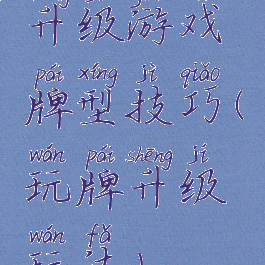 升级游戏
pái xíng jì qiǎo
牌型技巧(
wán pái shēng jí
玩牌升级
wán fǎ
玩法)